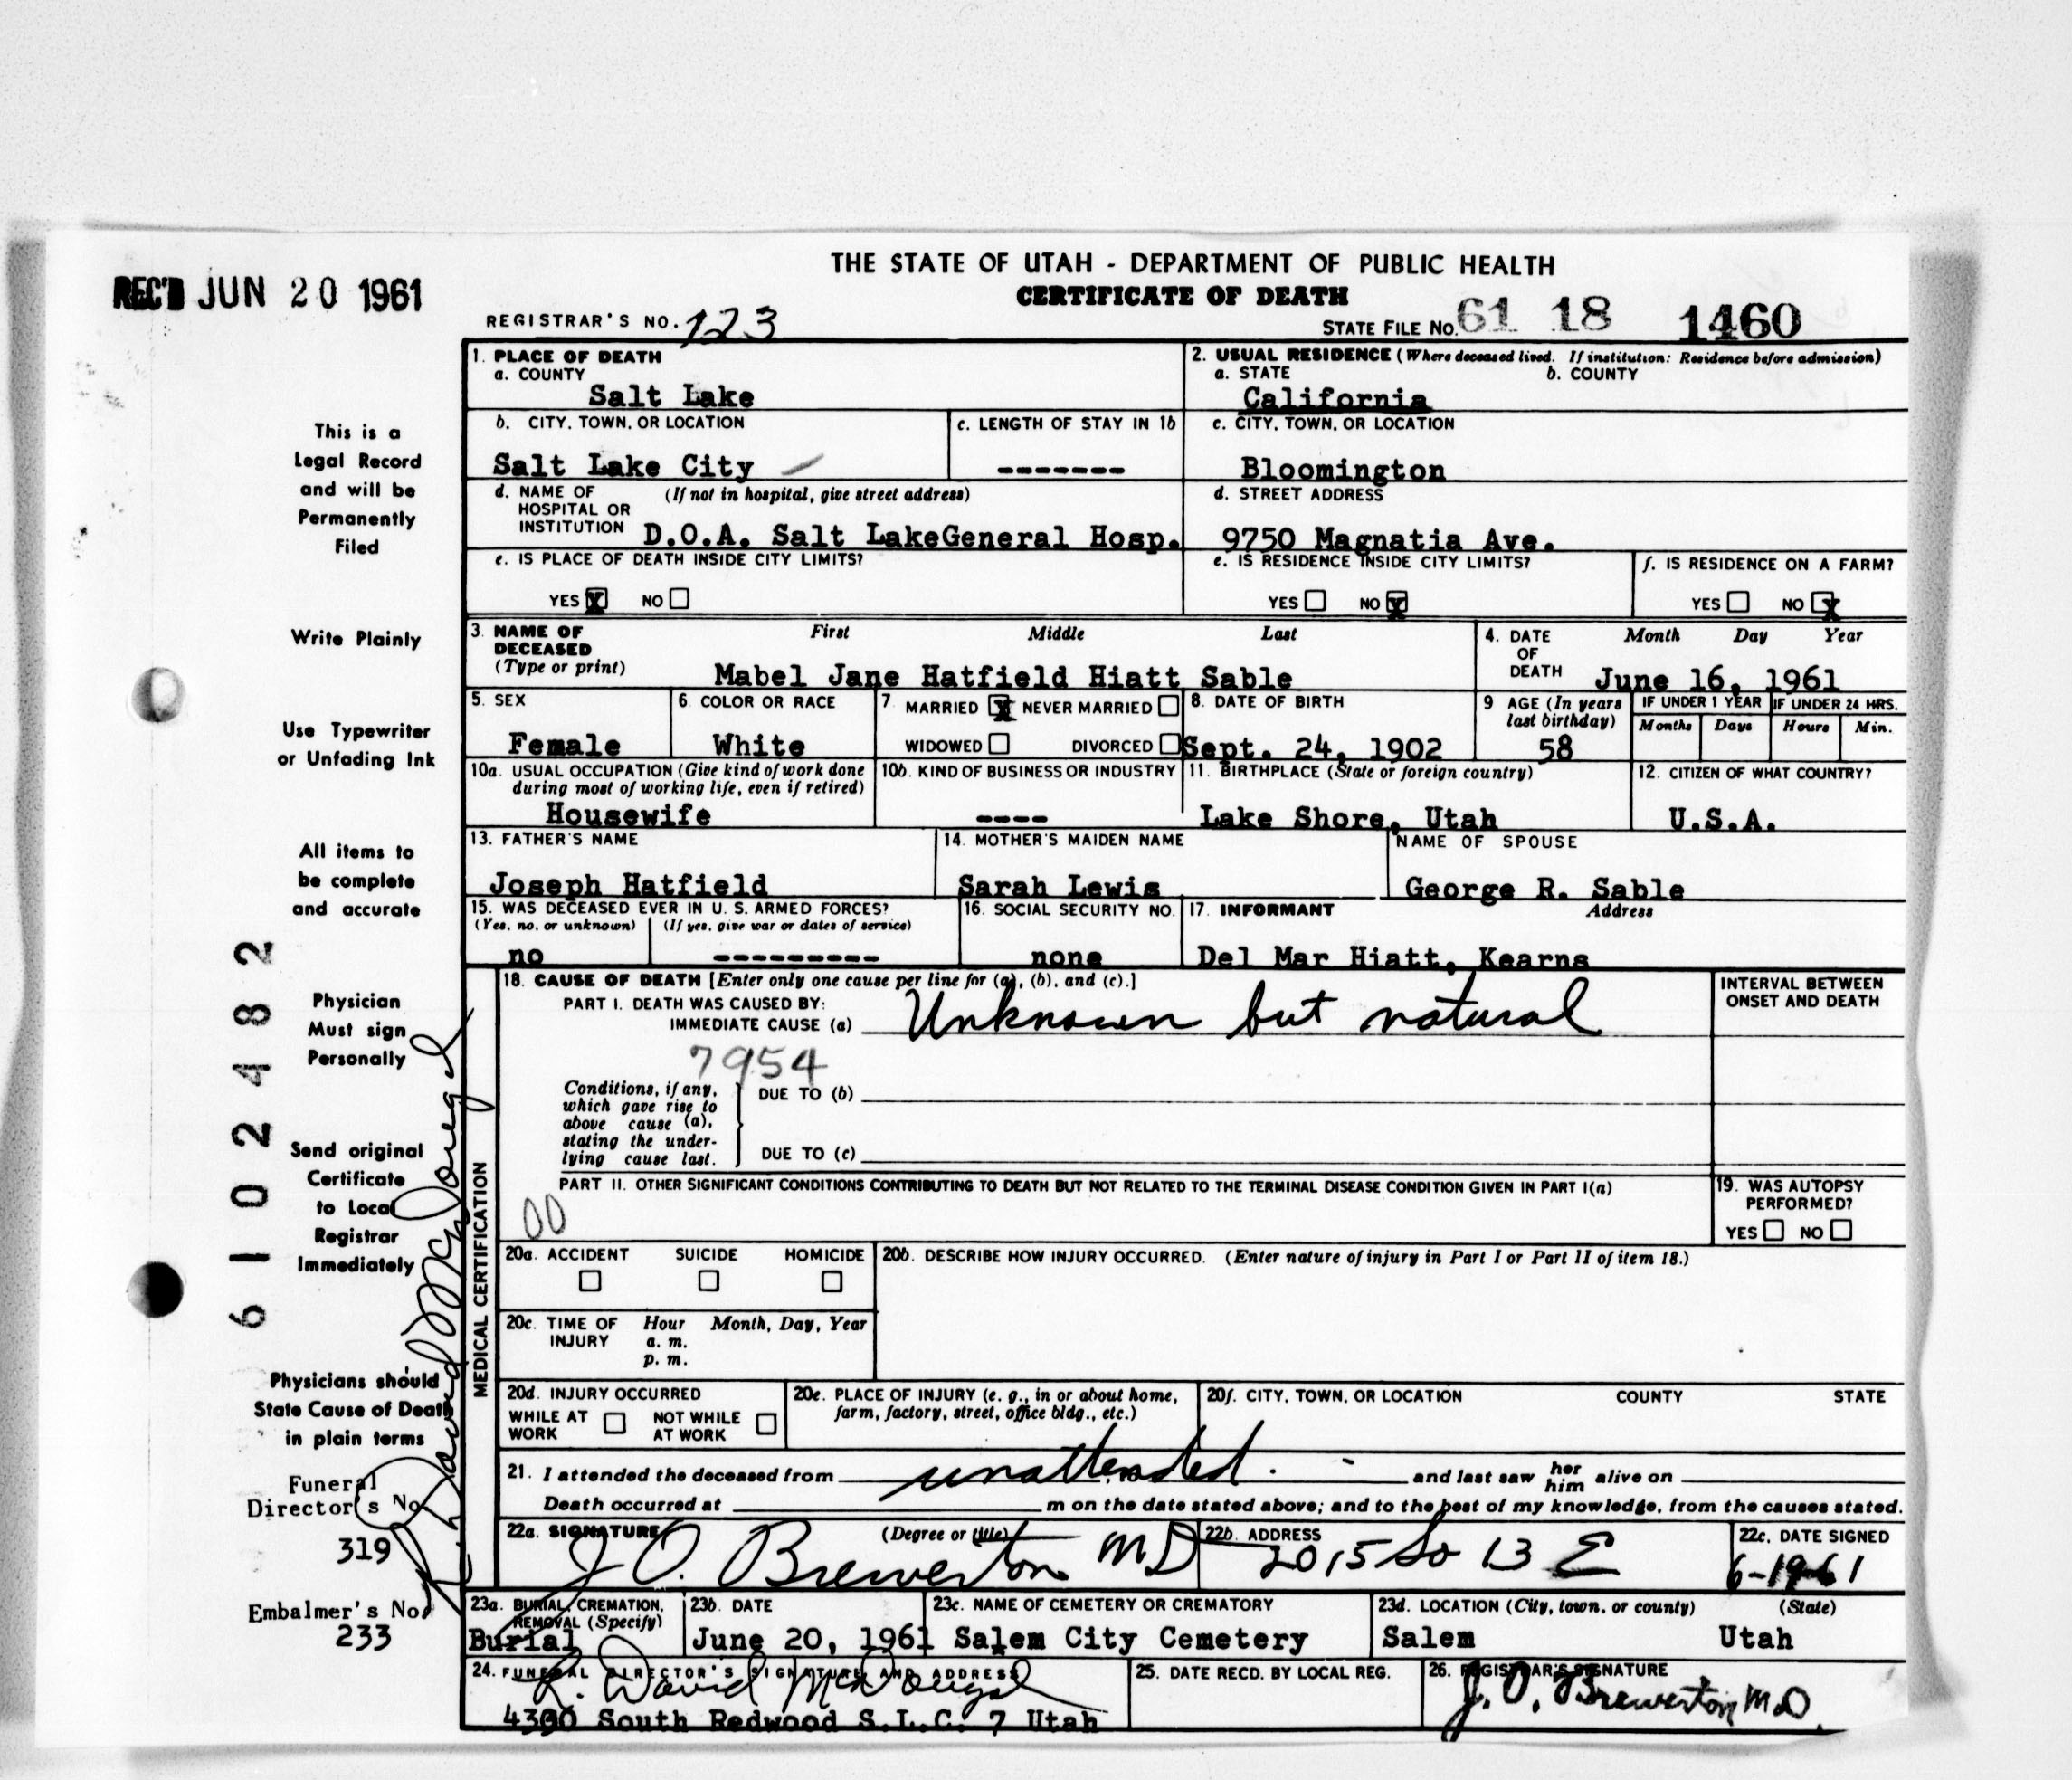 THE STATE OF UTAH - DEPARTMENT OF PUBLIC HEALTH
CERTIFICATE OF DEATH
REC'D JUN 20 1961
REGISTRAR'S NO. 123
STATE FILE NO. 61 18 1460
1. PLACE OF DEATH
a. COUNTY
Salt Lake
2. USUAL RESIDENCE (Where deceased lived. If institution: Residence before admission)
a. STATE b. COUNTY
California
b. CITY, TOWN, OR LOCATION
Salt Lake City
c. LENGTH OF STAY IN 1b
-------
c. CITY, TOWN, OR LOCATION
Bloomington
d. NAME OF (If not in hospital, give street address)
HOSPITAL OR
INSTITUTION D.O.A. Salt LakeGeneral Hosp.
d. STREET ADDRESS
9750 Magnatia Ave.
e. IS PLACE OF DEATH INSIDE CITY LIMITS?
YES X NO
e. IS RESIDENCE INSIDE CITY LIMITS?
YES NO X
f. IS RESIDENCE ON A FARM?
YES NO X
3. NAME OF DECEASED First Middle Last
(Type or print) Mabel Jane Hatfield Hiatt Sable
4. DATE OF DEATH Month Day Year
June 16, 1961
5. SEX
Female
6. COLOR OR RACE
White
7. MARRIED X NEVER MARRIED
WIDOWED DIVORCED
8. DATE OF BIRTH
Sept. 24, 1902
9 AGE (In years last birthday)
58
IF UNDER 1 YEAR IF UNDER 24 HRS.
Months Days Hours Min.
10a. USUAL OCCUPATION (Give kind of work done
during most of working life, even if retired)
Housewife
10b. KIND OF BUSINESS OR INDUSTRY
----
11. BIRTHPLACE (State or foreign country)
Lake Shore, Utah
12. CITIZEN OF WHAT COUNTRY?
U.S.A.
13. FATHER'S NAME
Joseph Hatfield
14. MOTHER'S MAIDEN NAME
Sarah Lewis
NAME OF SPOUSE
George R. Sable
15. WAS DECEASED EVER IN U. S. ARMED FORCES?
(Yes, no, or unknown) (If yes, give war or dates of service)
no ---------
16. SOCIAL SECURITY NO.
none
17. INFORMANT Address
Del Mar Hiatt, Kearns
MEDICAL CERTIFICATION
18. CAUSE OF DEATH [Enter only one cause per line for (a), (b), and (c).]
PART I. DEATH WAS CAUSED BY:
IMMEDIATE CAUSE (a) Unknown but natural
7954
INTERVAL BETWEEN
ONSET AND DEATH
Conditions, if any,
which gave rise to
above cause (a),
stating the under-
lying cause last.
DUE TO (b)
DUE TO (c)
PART II. OTHER SIGNIFICANT CONDITIONS CONTRIBUTING TO DEATH BUT NOT RELATED TO THE TERMINAL DISEASE CONDITION GIVEN IN PART I(a)
00
19. WAS AUTOPSY
PERFORMED?
YES NO
20a. ACCIDENT SUICIDE HOMICIDE
20b. DESCRIBE HOW INJURY OCCURRED. (Enter nature of injury in Part I or Part II of item 18.)
20c. TIME OF INJURY Hour Month, Day, Year
a. m.
p. m.
20d. INJURY OCCURRED
WHILE AT WORK NOT WHILE AT WORK
20e. PLACE OF INJURY (e. g., in or about home,
farm, factory, street, office bldg., etc.)
20f. CITY, TOWN, OR LOCATION COUNTY STATE
21. I attended the deceased from unattended. and last saw her him alive on
Death occurred at m on the date stated above; and to the best of my knowledge, from the causes stated.
22a. SIGNATURE (Degree or title)
J O. Brewerton MD
22b. ADDRESS
2015 So 13 E
22c. DATE SIGNED
6-19-61
23a. BURIAL, CREMATION,
REMOVAL (Specify)
Burial
23b. DATE
June 20, 1961
23c. NAME OF CEMETERY OR CREMATORY
Salem City Cemetery
23d. LOCATION (City, town, or county) (State)
Salem Utah
24. FUNERAL DIRECTOR'S SIGNATURE AND ADDRESS
R. David McDougal
4330 South Redwood S.L.C. 7 Utah
25. DATE RECD. BY LOCAL REG.
26. REGISTRAR'S SIGNATURE
J. O. Brewerton M.D.
This is a
Legal Record
and will be
Permanently
Filed
Write Plainly
Use Typewriter
or Unfading Ink
All items to
be complete
and accurate
Physician
Must sign
Personally
Send original
Certificate
to Local
Registrar
Immediately
Physicians should
State Cause of Death
in plain terms
Funeral
Director's No.
319
Embalmer's No.
233
6102482
R. David McDougal